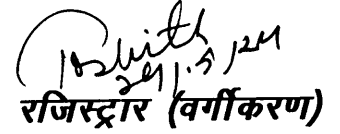 29/5/24
रजिस्ट्रार (वर्गीकरण)